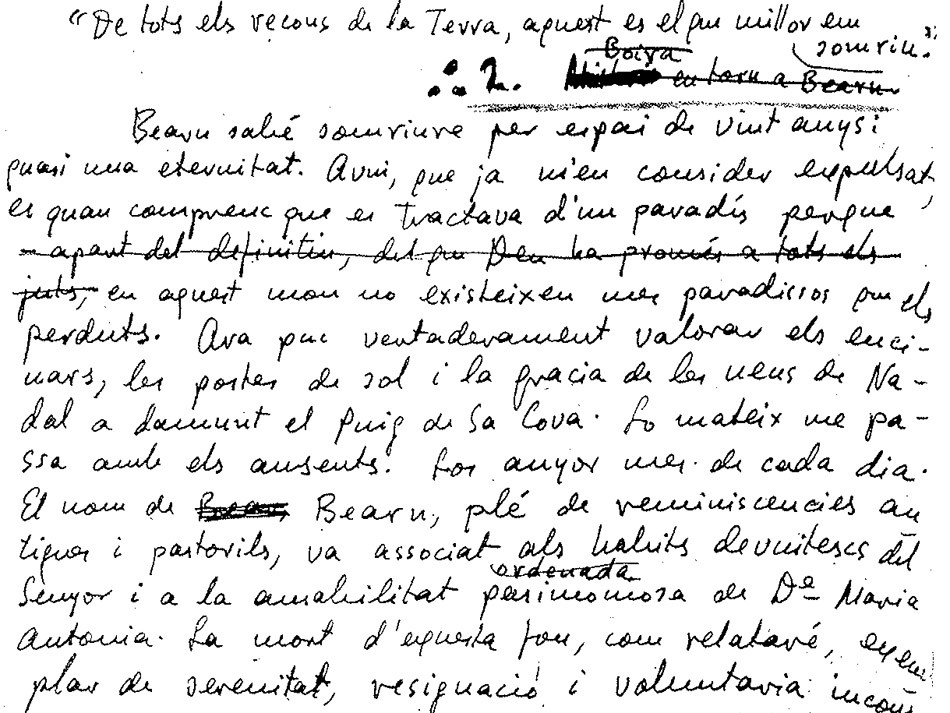 "De tots els recons de la Terra, aquest es el que millor em
somriu."
Boira
2. en torn a Bearn.
Bearn sabé somriure per espai de vint anys:
quasi una eternitat. Avui, que ja m'en consider expulsat,
es quan comprenc que es tractava d'un paradís perque
- apart del definitiu, del que Deu ha promés a tots els
justs, en aquest mon no existeixen mes paradissos que els
perduts. Ara puc vertaderament valorar els enci-
nars, les postes de sol i la gracia de les neus de Na-
dal a damunt el Puig de Sa Cova. Lo mateix me pa-
ssa amb els ausents. Los anyor mes de cada dia.
El nom de Bearn, plé de reminiscencies an
tigues i pastorils, va associat als habits devuitescs del
ordenada
Senyor i a la amabilitat parsimoniosa de Dª Maria
Antonia. La mort d'equesta fou, com relataré, exem
plar de serenitat, resignació i voluntaria incons